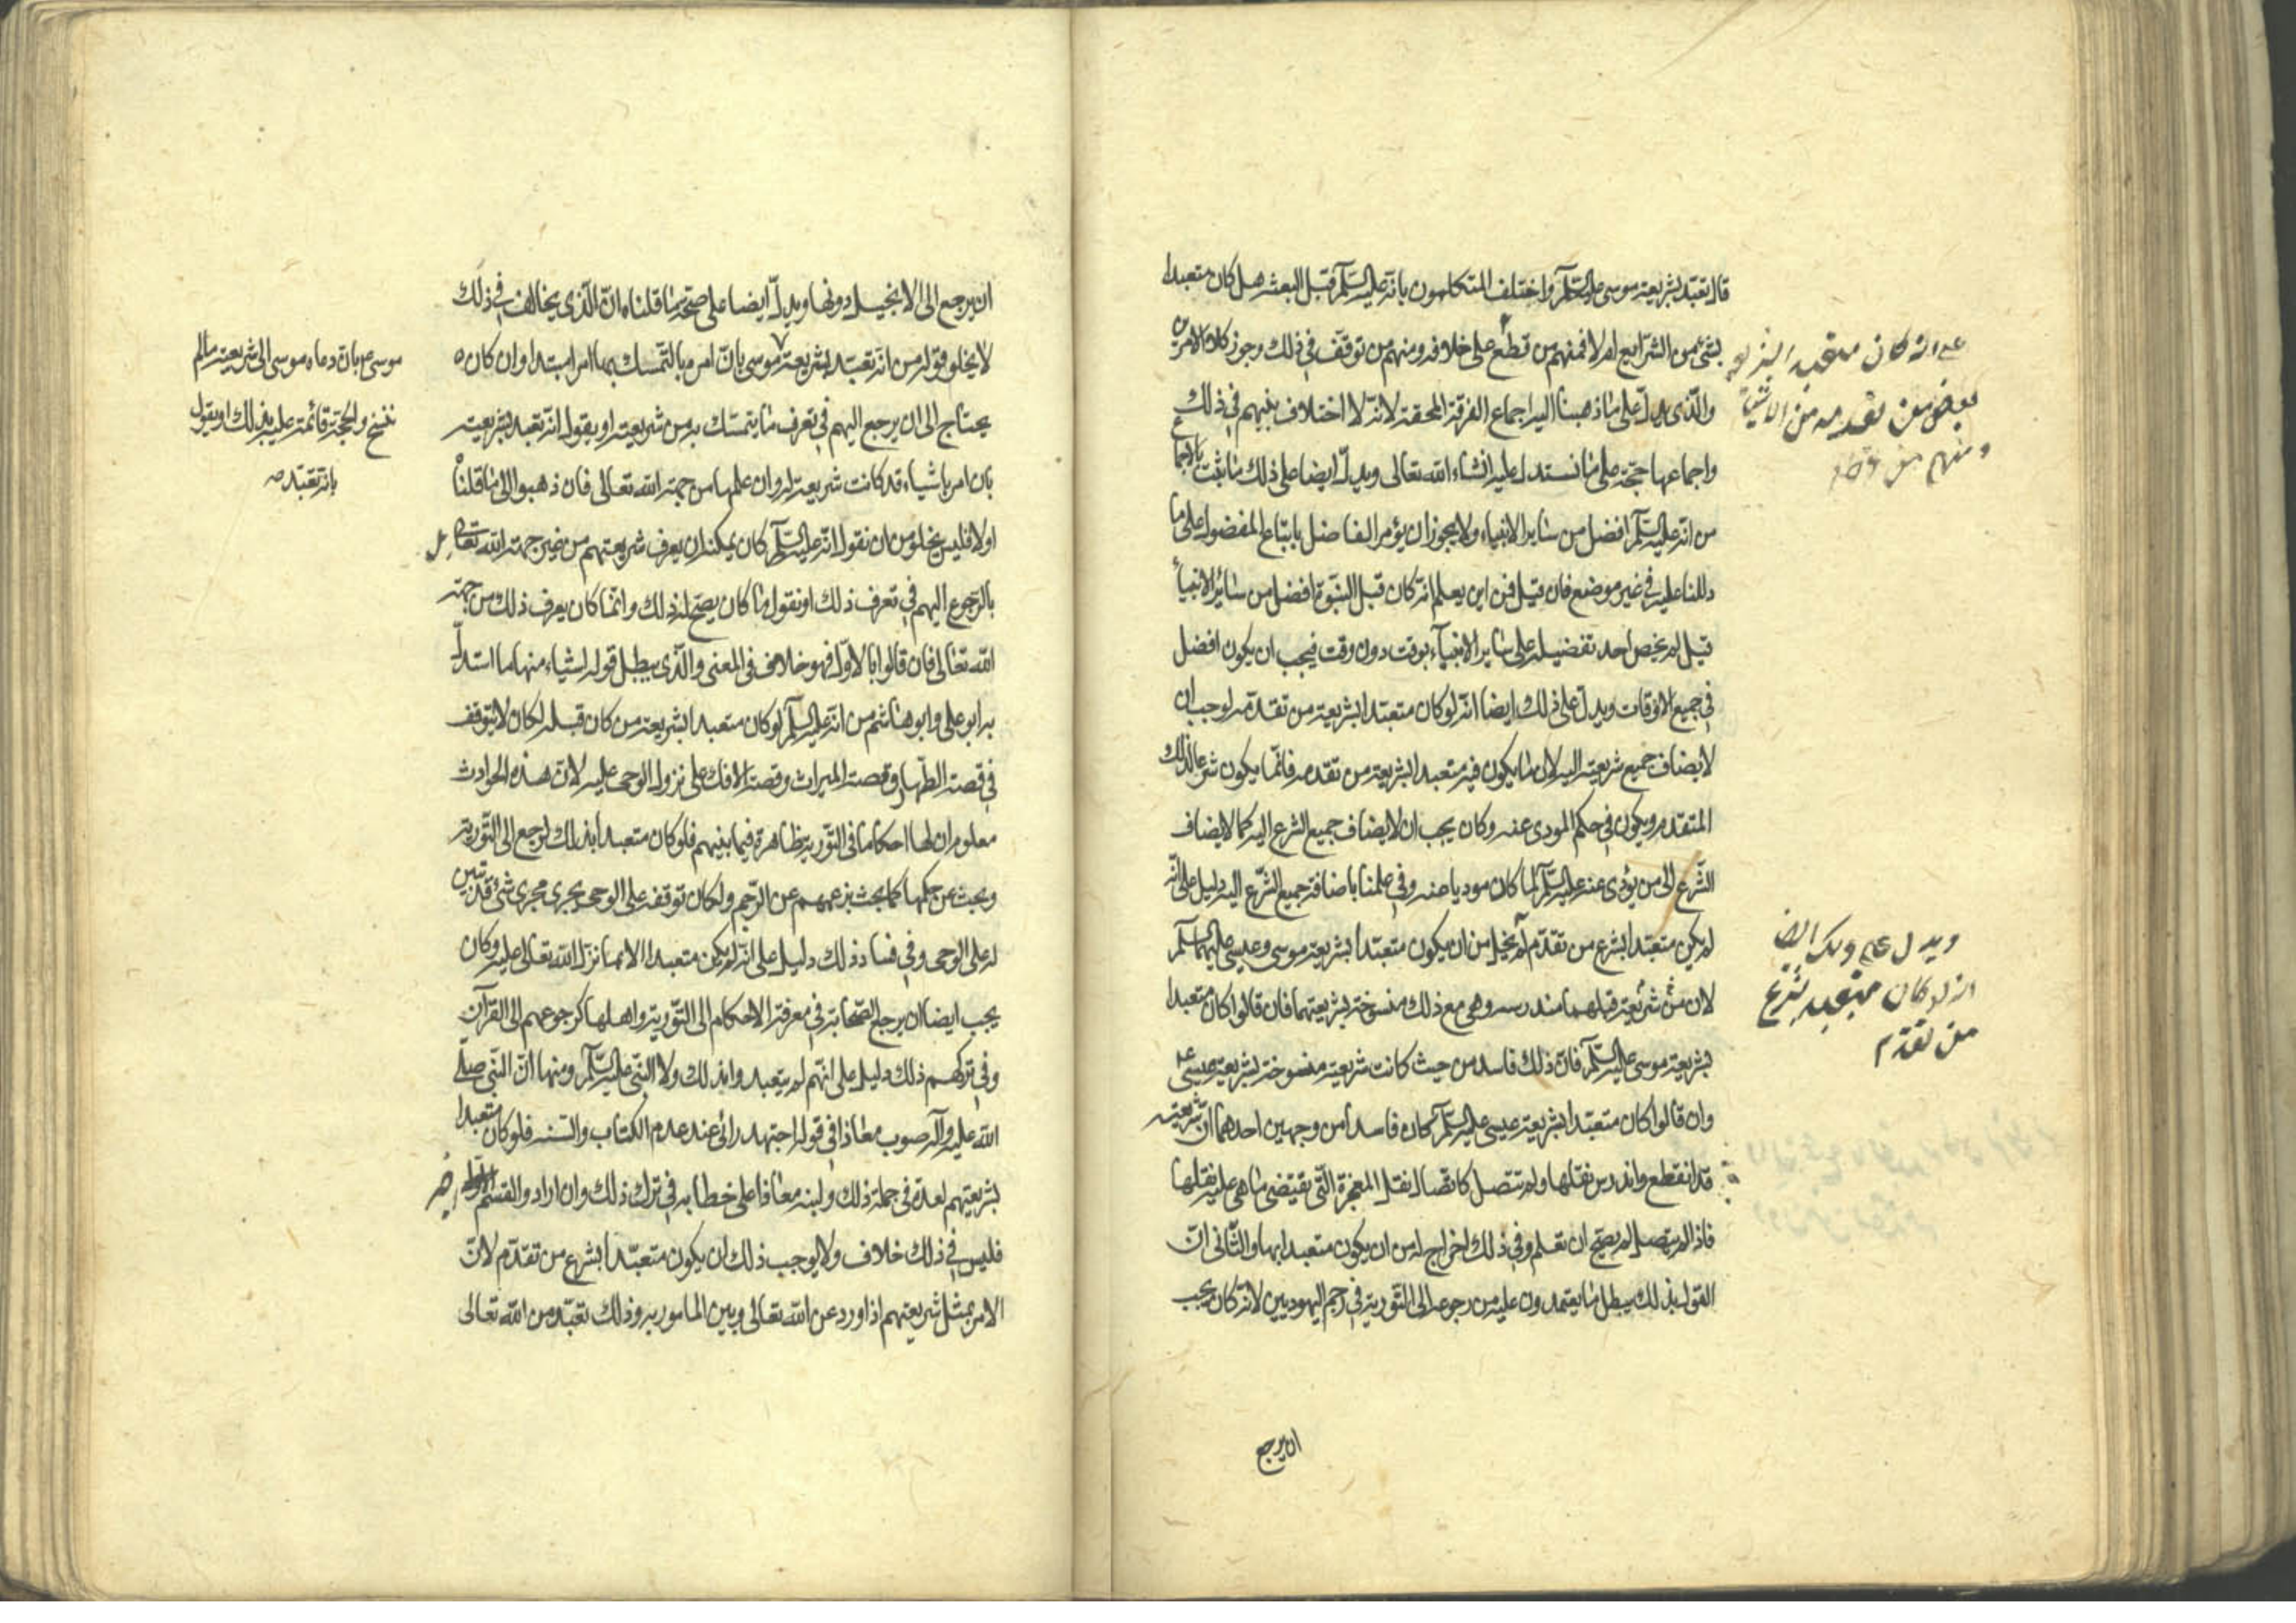 قال تعبّد بشريعة موسى عليه السّلم واختلف المتكلمون بانّه عليه السّلم قبل البعثه هل كان متعبدا
بشئ من الشرّايع ام لا فمنهم من قطع على خلافه ومنهم من توقّف في ذلك وجوز كلا الامرين
على انه كان متعبدا بشريعة
بعض من تقدمه من الانبياء
ومنهم من
والّذى يدلّ على ما ذهبنا اليه اجماع الفرقة المحقة لانّه لا اختلاف بينهم في ذلك
واجماعها حجّة على ما نستدل عليه انشاء الله تعالى ويدلّ ايضا على ذلك ما ثبت بالاجماع
من انّه عليه السّلم افضل من ساير الانبياء ولا يجوز ان يؤمر الفاضل باتباع المفضول على ما
دللنا عليه في غير موضع فان قيل فمن اين يعلم انّه كان قبل النبّوة افضل من سائر الانبياء
قيل لم يخص احد تفضيله على ساير الانبيآء بوقت دون وقت فيجب ان يكون افضل
في جميع الاوقات ويدلّ على ذلك ايضا انّه لو كان متعبّدا بشريعة من تقدّمه لوجب ان
لا يضاف جميع شريعته اليه لان ما يكون فيه متعبدا بشريعة من تقدمه فانّما يكون شرعا لذلك
المتقدم ويكون في حكم المودى عنه وكان يجب ان لا يضاف جميع الشرع اليه كما لا يضاف
الشّرع الى من يؤدى عنه عليه السّلم لما كان موديا عنه وفي علمنا باضافة جميع الشّرع اليه دليل على انّه
لم يكن متعبّدا بشرع من تقدّم لم يخل من ان يكون متعبّدا بشريعة موسى وعيسى عليهما السّلم
ويدل على ذلك ايضا
انه لو كان متعبد بشرع
من تقدم
لان من شريعة قبلهما مندرسه وهى مع ذلك منسوخة بشريعتهما فان قالوا كان متعبدا
بشريعة موسى عليه السّلم فانّ ذلك فاسد من حيث كانت شريعته منسوخة بشريعة عيسى ع
وان قالوا كان متعبّدا بشريعة عيسى عليه السّلم كان فاسدا من وجهين احدهما انّ شريعته
قد انقطع واندرس نقلها ولم تتصل كاتصال نقل المعجزة الّتى يقتضى ما هى عليه نقلها
فاذا لم يتصل لم يصحّ ان تعلم وفي ذلك اخراج له من ان يكون متعبدا بها والثّانى انّ
القول بذلك يبطل ما يعتمدون عليه من رجوعه الى التّورية في رجم اليهوديين لانّه كان يجب
ان يرجع
ان يرجع الى الانجيل دونها ويدلّ ايضا على صحّة ما قلناه انّ الّذى يخالف في ذلك
لا يخلو قوله من انّه تعبّد بشريعة موسى بانّ امره بالتّمسك بها امرا مبتدا وان كان
موسى ع بان دعاه موسى الى شريعته ما لم
تنسخ والحجّة قائمة عليه بذلك او يقول
بانه تعبّد صه
يحتاج الى ان يرجع اليهم في تعرف ما يتمسّك به من شريعته او يقول انّه تعبد بشريعته
بان امر باشياء قد كانت شريعة له وان علمها من جهة الله تعالى فان ذهبوا الى ما قلناه
اولا فليس يخلو من ان نقول انّه عليه السّلم كان يمكنه ان يعرف شريعتهم من غير جهة الله تعالى
بالرّجوع اليهم في تعرف ذلك او نقول ما كان يصحّ له ذلك وانّما كان يعرف ذلك من جهة
الله تعالى فان قالوا بالاوّل فهو خلاف في المعنى والّذى يبطل قوله اشياء منها ما استدلّ
به ابو على وابو هاشم من انّه عليه السّلم لو كان متعبدا بشريعة من كان قبله لكان لا يتوقف
في قصة الظّهار وقصة الميراث وقصة الافك على نزول الوحى عليه لانّ هذه الحوادث
معلوم ان لها احكاما في التّورية ظاهرة فيما بينهم فلو كان متعبدا بذلك لرجع الى التّورية
وبحث عن حكمها كما بحث بزعمهم عن الرّجم ولكان توقفه على الوحى يجرى مجرى شئ قد تبين
له على الوحى وفي فساد ذلك دليل على انّه لم يكن متعبدا الا بما نزّل الله تعالى عليه وكان
يجب ايضا ان يرجع الصّحابة في معرفة الاحكام الى التّورية واهلها كرجوعهم الى القرآن
وفي تركهم ذلك دليل على انّهم لم يتعبدوا بذلك ولا النّبى عليه السّلم ومنها انّ النّبى صلّى
الله عليه وآله صوب معاذا في قوله اجتهد رائى عند عدم الكتاب والسّنه فلو كان متعبدا
بشريعتهم لعدّه في جملة ذلك ولنبه معاذا على خطابه في ترك ذلك وان ارادوا القسم
فليس في ذلك خلاف ولا يوجب ذلك ان يكون متعبّدا بشرع من تقدّم لانّ
الامر بمثل شريعتهم اذا ورد عن الله تعالى وبين المامور به وذلك تعبّد من الله تعالى